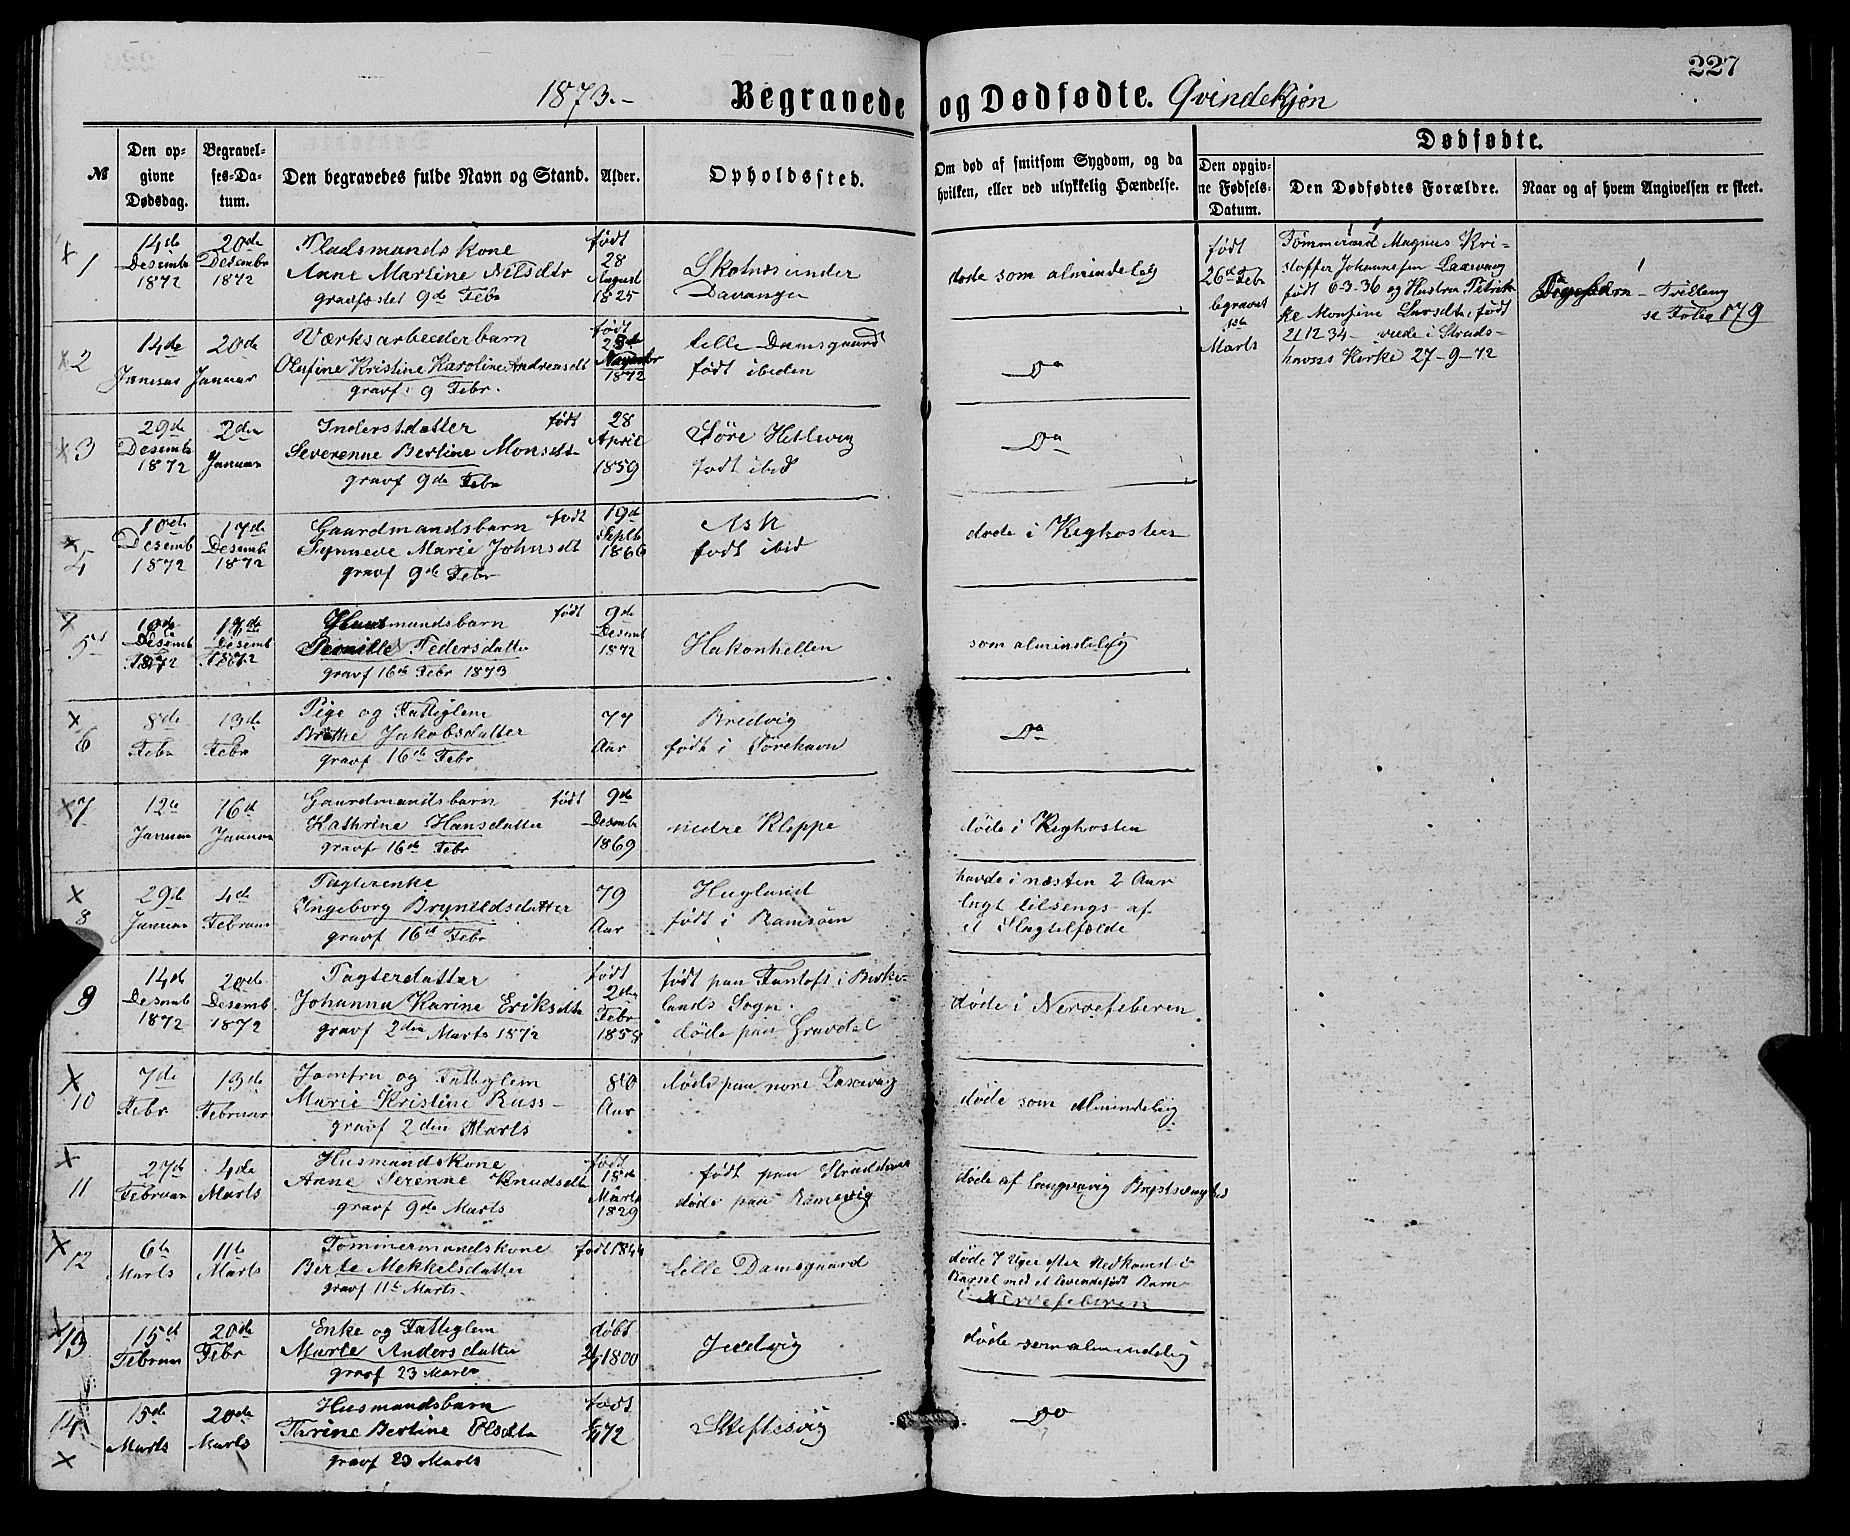 227
1873.-
Begravede og Dødfødte. Qvindekjøn
№
Den opgivne Dødsdag.
Begravelses-Datum.
Den begravedes fulde Navn og Stand.
Alder.
Opholdssted.
Om død af smitsom Sygdom, og da hvilken, eller ved ulykkelig Hændelse.
Dødfødte.
Den opgivne Fødsels-Datum.
Den Dødfødtes Forældre.
Naar og af hvem Angivelsen er skeet.
1
14de Desembr 1872
20de Desembr 1872
Pladsmands Kone
Anne Martine Nilsdtr
gravfæstet 9de Febr
født 28 August 1825
Davanger
døde som almindelig
født 26de Febr begravet 1ste Marts
Magnus Kristoffer Johannesen Laxevaag
født 6-3-36 og Hustru
født
21 12 34 - viede i
havns Kirke 27-9-72
Tvilling
se Folio 179
2
14de Januar
20de Januar
Værksarbeederbarn
Olufine Kristine Karoline Andreasdt
gravf: 9 Febr.
født 1872
Lille Damsgaard
født ibiden
Do
3
29de Desembr 1872
2den Januar
Inderstdatter
Severenne Bertine Monsdtr
gravf 9de Febr
født 28 April 1859
Søre Hetlevig
født ibid
Do
4
10de Desemb 1872
17de Desemb 1872
Gaardmandsbarn
Synneve Marie Johnsdt
gravf 9de Febr
født 19de Septb 1866
Ask
født ibid
døde i Kighosten
5
1872
1872
Husmandsbarn
Pedersdatter
gravf 16de Febr 1873
født 9de Desemb 1872
Hakonhellen
som almindelig
6
8de Febr
13de Febr
Pige og Fattiglem
Jakobsdatter
gravf 16de Febr
77 Aar
Bredvig
født i Sørehavn
Do
7
12te Januar
16de Januar
Gaardmandsbarn
Kathrine Hansdatter
gravf 16de Febr
født 9de Desembr 1869
nedre Kleppe
døde i Kighosten
8
29de Januar
4de Februar
Ingeborg Brynildsdatter
gravf 16de Febr
79 Aar
Hugland
født i Ramsøen
havde i næsten 2 Aar
lagt tilsengs af
et Slagtilfælde
9
14de Desemb 1872
20de Desemb 1872
Johanna Karine Eriksdtr
gravf 2den Marts 1872
født 2den Febr 1858
født paa Fantoft i Birkelands Sogn.
døde paa Gravdal
døde i Nervefeberen
10
7de Febr
13de Februar
Jomfru og Fattiglem
Marie Kristine Russ
gravf 2den Marts
80 Aar
døde paa nore Laxevaag
døde som almindelig
11
27de Februar
4de Marts
Husmandskone
Anne Serenne Knudsdtr
gravf 9de Marts
født 18de Marts 1829
født paa
døde paa
døde af langvarig
12
6te Marts
11te Marts
Tømmermandskone
Berte Mekkelsdatter
gravf 11te Marts.
født 1844
Lille Damsgaard
døde 7 Uger efter Nedkomst i
Barsel med et levendefødt Barn
i Nervefeberen
13
15de Februar
20de Febr
Enke og Fattiglem
Marte Andersdatter
gravf 23 Marts
døbt 1800
døde som almindelig
14
15de Marts
20de Marts
Husmandsbarn
Bertine Olsdtr
gravf 23 Marts
født 72
Skiftesvig
Do